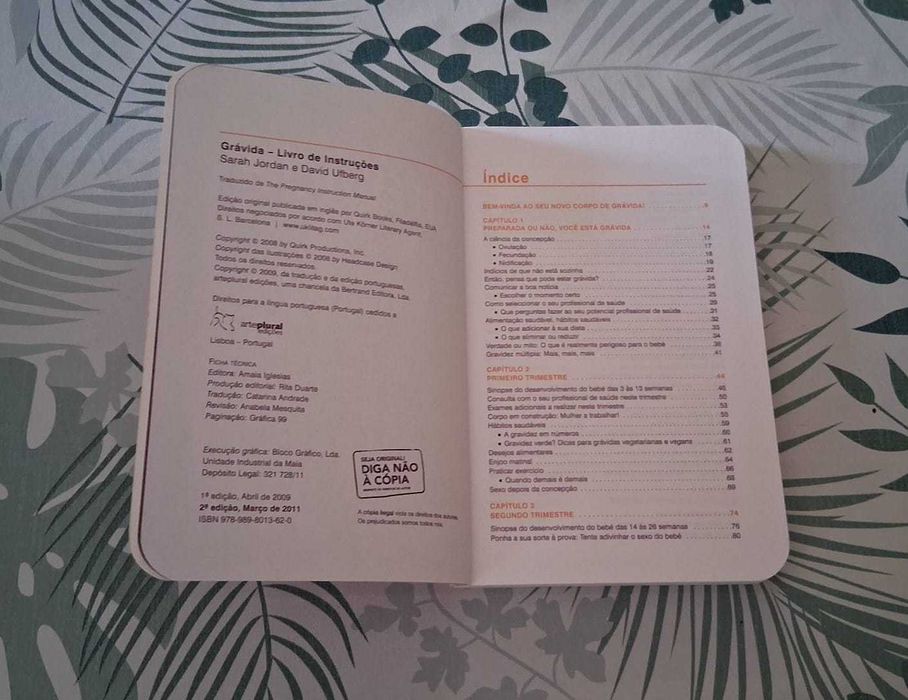 Grávida – Livro de Instruções
Sarah Jordan e David Ufberg
Traduzido de The Pregnancy Instruction Manual
Edição original publicada em inglês por Quirk Books, Filadélfia, EUA
Direitos negociados por acordo com Ute Körner Literary Agent,
S. L. Barcelona | www.uklitag.com
Copyright © 2008 by Quirk Productions, Inc.
Copyright das ilustrações © 2008 by Headcase Design
Todos os direitos reservados.
Copyright © 2009, da tradução e da edição portuguesas,
arteplural edições, uma chancela da Bertrand Editora, Lda.
Direitos para a língua portuguesa (Portugal) cedidos a
arteplural
edições
Lisboa – Portugal
FICHA TÉCNICA
Editora: Amaia Iglesias
Produção editorial: Rita Duarte
Tradução: Catarina Andrade
Revisão: Anabela Mesquita
Paginação: Gráfica 99
Execução gráfica: Bloco Gráfico, Lda.
Unidade Industrial da Maia
Depósito Legal: 321 728/11
1ª edição, Abril de 2009
2ª edição, Março de 2011
ISBN 978-989-8013-62-0
SEJA ORIGINAL!
DIGA NÃO
À CÓPIA
RESPEITE OS DIREITOS DE AUTOR
A cópia ilegal viola os direitos dos autores.
Os prejudicados somos todos nós.
Índice
BEM-VINDA AO SEU NOVO CORPO DE GRÁVIDA! .9
CAPÍTULO 1
PREPARADA OU NÃO, VOCÊ ESTÁ GRÁVIDA 14
A ciência da concepção 17
• Ovulação 17
• Fecundação 18
• Nidificação 19
Indícios de que não está sozinha 22
Então, pensa que pode estar grávida? 24
Comunicar a boa notícia 25
• Escolher o momento certo 25
Como seleccionar o seu profissional de saúde
• Que perguntas fazer ao seu potencial profissional de saúde 31
Alimentação saudável, hábitos saudáveis 32
• O que adicionar à sua dieta 33
• O que eliminar ou reduzir 34
Verdade ou mito: O que é realmente perigoso para o bebé
Gravidez múltipla: Mais, mais, mais 41
CAPÍTULO 2
PRIMEIRO TRIMESTRE 44
Sinopse do desenvolvimento do bebé das 3 às 13 semanas
Consulta com o seu profissional de saúde neste trimestre 50
Exames adicionais a realizar neste trimestre 53
Corpo em construção: Mulher a trabalhar! 58
Hábitos saudáveis 59
• A gravidez em números 60
• Gravidez verde? Dicas para grávidas vegetarianas e vegans 61
Desejos alimentares 62
Enjoo matinal 64
Praticar exercício 66
• Quando demais é demais 68
Sexo depois da concepção 69
CAPÍTULO 3
SEGUNDO TRIMESTRE 74
Sinopse do desenvolvimento do bebé das 14 às 26 semanas 76
Ponha a sua sorte à prova: Tente adivinhar o sexo do bebé 80